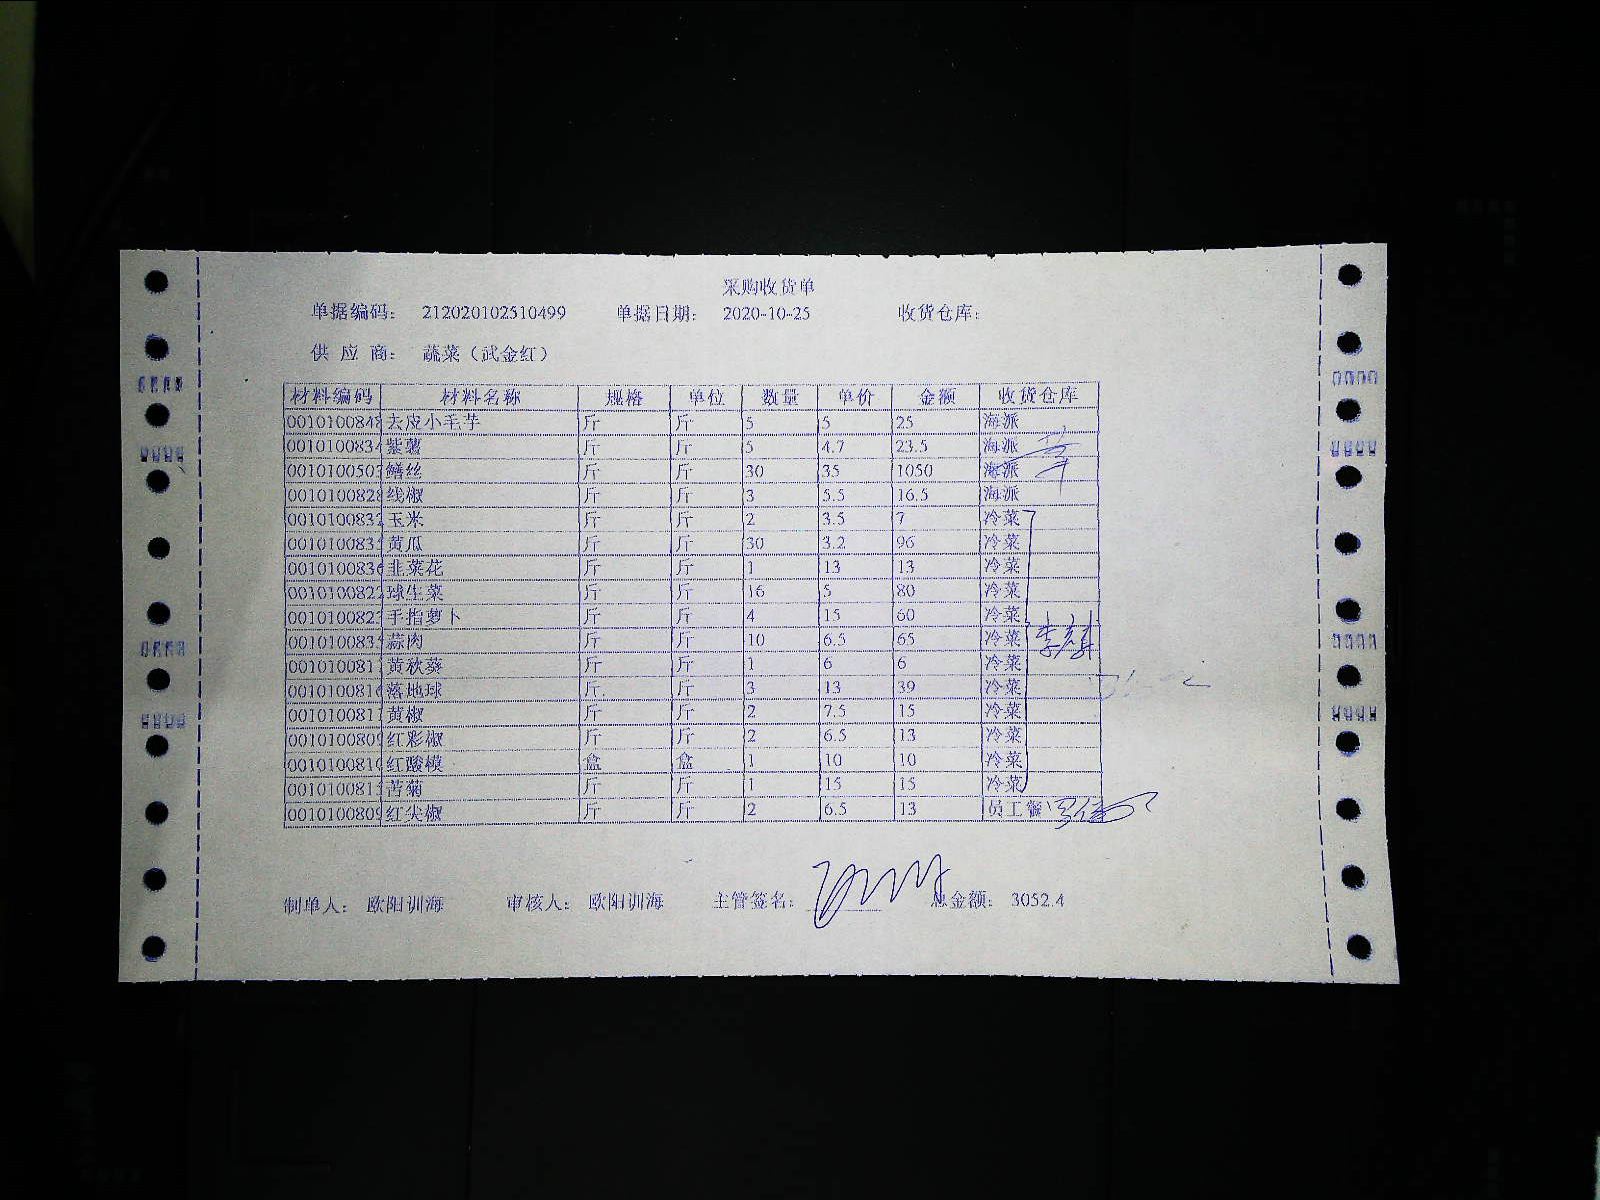 采购收货单
单据编码： 212020102510499 单据日期： 2020-10-25 收货仓库：
供 应 商： 蔬菜（武金红）
材料编码 材料名称 规格 单位 数量 单价 金额 收货仓库
0010100848 去皮小毛芋 斤 斤 5 5 25 海派
0010100834 紫薯 斤 斤 5 4.7 23.5 海派
0010100503 鳝丝 斤 斤 30 35 1050 海派
0010100828 线椒 斤 斤 3 5.5 16.5 海派
001010083 玉米 斤 斤 2 3.5 7 冷菜
001010083 黄瓜 斤 斤 30 3.2 96 冷菜
0010100836 韭菜花 斤 斤 1 13 13 冷菜
0010100822 球生菜 斤 斤 16 5 80 冷菜
001010082 手指萝卜 斤 斤 4 15 60 冷菜
001010083 蒜肉 斤 斤 10 6.5 65 冷菜
001010081 黄秋葵 斤 斤 1 6 6 冷菜
0010100816 落地球 斤 斤 3 13 39 冷菜
001010081 黄椒 斤 斤 2 7.5 15 冷菜
0010100809 红彩椒 斤 斤 2 6.5 13 冷菜
0010100810 红酸模 盒 盒 1 10 10 冷菜
001010081 苦菊 斤 斤 1 15 15 冷菜
0010100809 红尖椒 斤 斤 2 6.5 13 员工餐
制单人： 欧阳训海 审核人： 欧阳训海 主管签名： 总金额： 3052.4